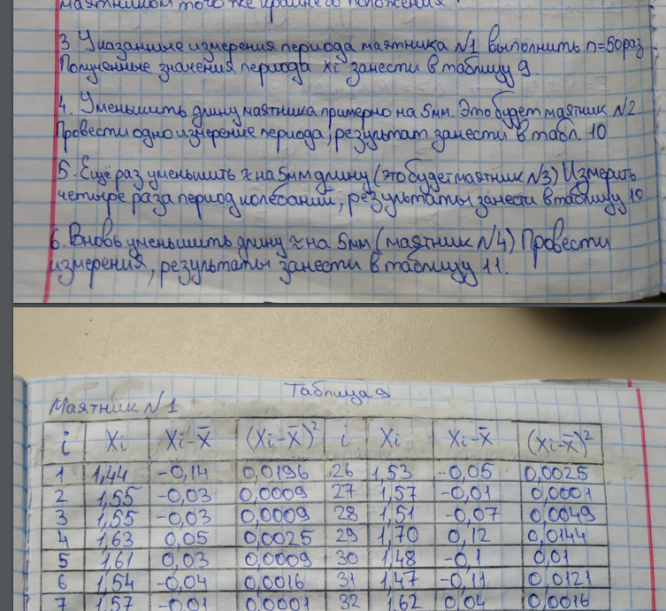 маятником того же крайнего положения.
3. Указанные измерения периода маятника №1 выполнить n=50раз
Полученные значения периода xi занести в таблицу 9.
4. Уменьшить длину маятника примерно на 5мм. Это будет маятник №2
Провести одно измерение периода, результат занести в табл. 10
5. Ещё раз уменьшить ≈ на 5мм длину (это будет маятник №3) Измерить
четыре раза период колебаний, результаты занести в таблицу 10
6. Вновь уменьшить длину ≈ на 5мм (маятник №4) Провести
измерения, результаты занести в таблицу 11.
Таблица 9
Маятник №1
i Xi Xi-X̄ (Xi-X̄)² i Xi Xi-X̄ (Xi-X̄)²
1 1,44 -0,14 0,0196 26 1,53 -0,05 0,0025
2 1,55 -0,03 0,0009 27 1,57 -0,01 0,0001
3 1,55 -0,03 0,0009 28 1,51 -0,07 0,0049
4 1,63 0,05 0,0025 29 1,70 0,12 0,0144
5 1,61 0,03 0,0009 30 1,48 -0,1 0,01
6 1,54 -0,04 0,0016 31 1,47 -0,11 0,0121
7 1,57 -0,01 0,0001 32 1,62 0,04 0,0016